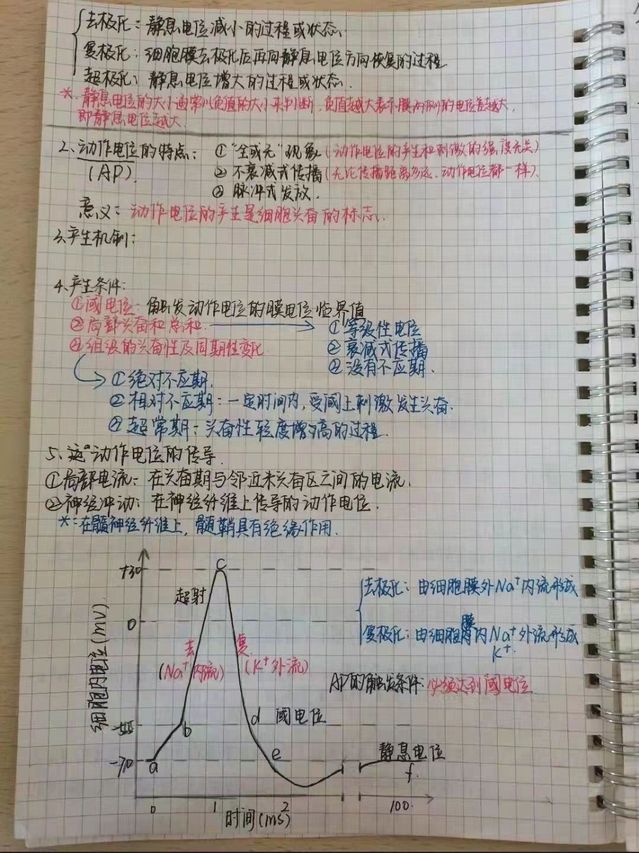 去极化：静息电位减小的过程或状态.
复极化：细胞膜去极化后再向静息电位方向恢复的过程.
超极化：静息电位增大的过程或状态.
*：静息电位的大小通常以负值的大小来判断，负值越大表示膜内外的电位差越大，
即静息电位越大.
2.动作电位的特点：①"全或无"现象(动作电位的产生和刺激的强度无关)
(AP) ②不衰减式传播(无论传播距离多远，动作电位都一样).
③脉冲式发放.
意义：动作电位的产生是细胞兴奋的标志.
3.产生机制：
4.产生条件：
①阈电位：触发动作电位的膜电位临界值
②局部兴奋和总和 ①等级性电位
③组织的兴奋性及周期性变化 ②衰减式传播
③没有不应期.
①绝对不应期.
②相对不应期：一定时间内，受阈上刺激发生兴奋.
③超常期：兴奋性轻度增高的过程.
5."动作电位的传导
①局部电流：在兴奋期与邻近未兴奋区之间的电流.
②神经冲动：在神经纤维上传导的动作电位.
*：在髓神经纤维上，髓鞘具有绝缘作用.
+30 c
超射
去极化：由细胞膜外Na⁺内流形成
0
复极化：由细胞膜内Na⁺外流形成
K⁺.
去 复
(Na⁺内流) (K⁺外流)
AP的触发条件：必须达到阈电位
细胞内电位(mV)
-55 b d 阈电位
-70 a e 静息电位
f
0 1 2 100.
时间(ms)